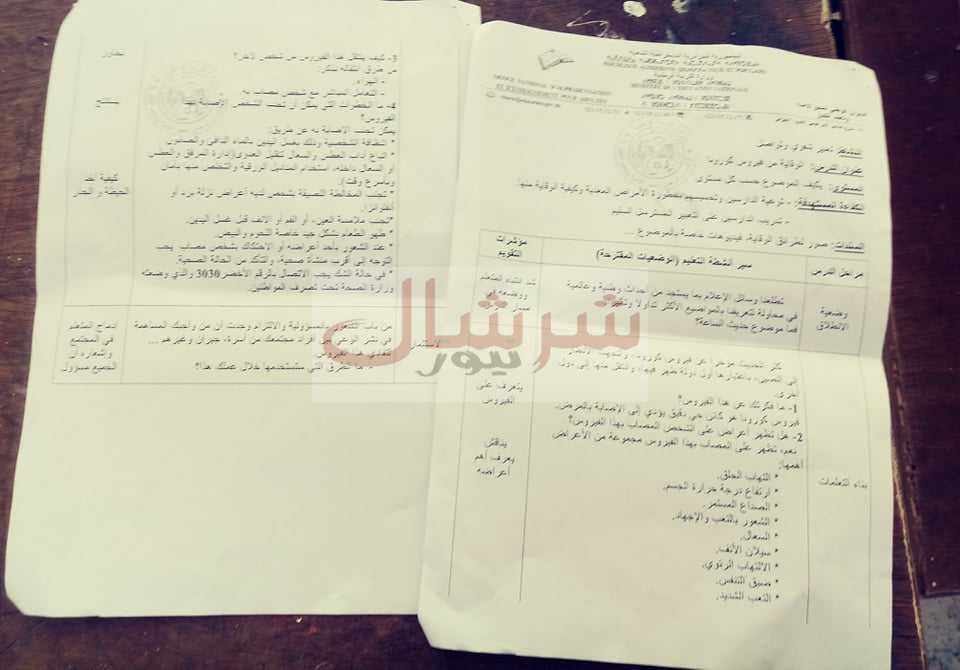 الجمهورية الجزائرية الديمقراطية الشعبية
وزارة التربية الوطنية
النشاط: تعبير شفوي وتواصل
عنوان الدرس: الوقاية من فيروس كورونا
المستوى: يكيف الموضوع حسب كل مستوى
الكفاءة المستهدفة: - توعية الدارسين وتحسيسهم بخطورة الأمراض المعدية وكيفية الوقاية منها.
- تدريب الدارسين على التعبير السليم
السندات: صور لطرائق الوقاية، فيديوهات خاصة بالموضوع ...
مراحل الدرس
سير أنشطة التعليم (الوضعيات المقترحة)
مؤشرات التقويم
وضعية الانطلاق
تطلعنا وسائل الإعلام بما يستجد من أحداث وطنية وعالمية
في محاولة لتعريفنا بالمواضيع الأكثر تداولا
فما موضوع حديث الساعة؟
شد انتباه المتعلم
ووضعه في
بناء التعلمات
أخرى.
1- ما فكرتك عن هذا الفيروس؟
فيروس كورونا هو كائن حي دقيق يؤدي إلى الإصابة بالمرض.
2- هل تظهر أعراض على الشخص المصاب بهذا الفيروس؟
نعم، تظهر على المصاب بهذا الفيروس مجموعة من الأعراض
أهمها:
* التهاب الحلق.
* ارتفاع درجة حرارة الجسم.
* الصداع المستمر.
* الشعور بالتعب والإجهاد.
* السعال.
* سيلان الأنف.
* الالتهاب الرئوي.
* ضيق التنفس.
* التعب الشديد.
يتعرف على
الفيروس
يناقش
يعرف أهم
أعراضه
3- كيف ينتقل هذا الفيروس من شخص لآخر؟
من طرق انتقاله نذكر:
- الهواء.
- التعامل المباشر مع شخص مصاب به
4- ما الخطوات التي يمكن أن تجنب الشخص الإصابة بهذا
الفيروس؟
يمكن تجنب الإصابة به عن طريق:
* النظافة الشخصية وذلك بغسل اليدين بالماء الدافئ والصابون
* اتباع آداب العطس والسعال لتقليل العدوى (إدارة المرفق والعطس
أو السعال بداخله، استخدام المناديل الورقية والتخلص منها بأمان
وبأسرع وقت).
* تجنب المخالطة اللصيقة بشخص لديه أعراض نزلة برد أو
أنفلونزا.
* تجنب ملامسة العين، أو الفم أو الأنف قبل غسل اليدين.
* طهو الطعام بشكل جيد خاصة اللحوم والبيض.
* عند الشعور بأحد أعراضه أو الاحتكاك بشخص مصاب يجب
التوجه إلى أقرب منشأة صحية، والتأكد من الحالة الصحية.
* في حالة الشك يجب الاتصال بالرقم الأخضر 3030 والذي وضعته
وزارة الصحة تحت تصرف المواطنين.
يحاور
يستنتج
كيفية أخذ
الحيطة والحذر
الاستثمار
من باب الشعور بالمسؤولية والالتزام وجدت أن من واجبك المساهمة
في نشر الوعي بين أفراد مجتمعك من أسرة، جيران وغيرهم ...
لتفادي هذا الفيروس.
- ما الطرق التي ستستخدمها خلال عملك هذا؟
إدماج المتعلم
في المجتمع
وإشعاره أن
الجميع مسؤول
شرشال
نيوز